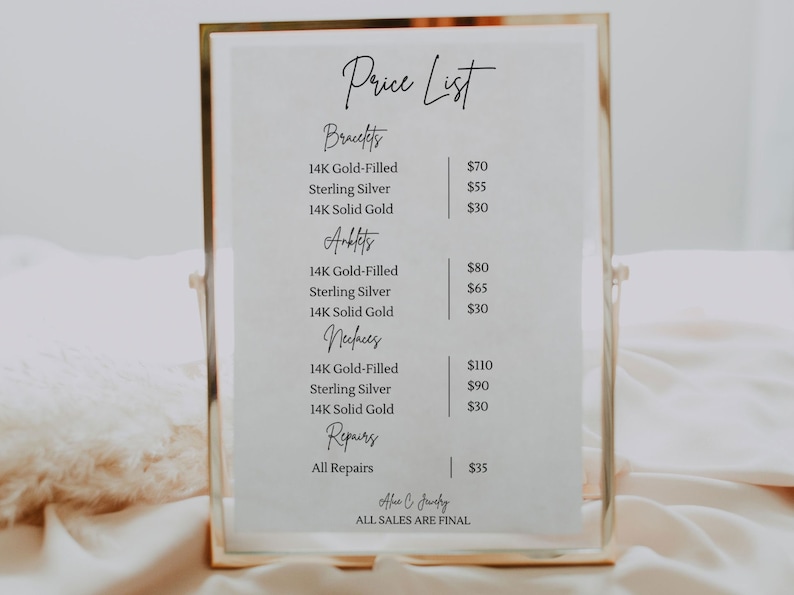 Price List
Bracelets
14K Gold-Filled $70
Sterling Silver $55
14K Solid Gold $30
Anklets
14K Gold-Filled $80
Sterling Silver $65
14K Solid Gold $30
Neclaces
14K Gold-Filled $110
Sterling Silver $90
14K Solid Gold $30
Repairs
All Repairs $35
Alice C. Jewelry
ALL SALES ARE FINAL